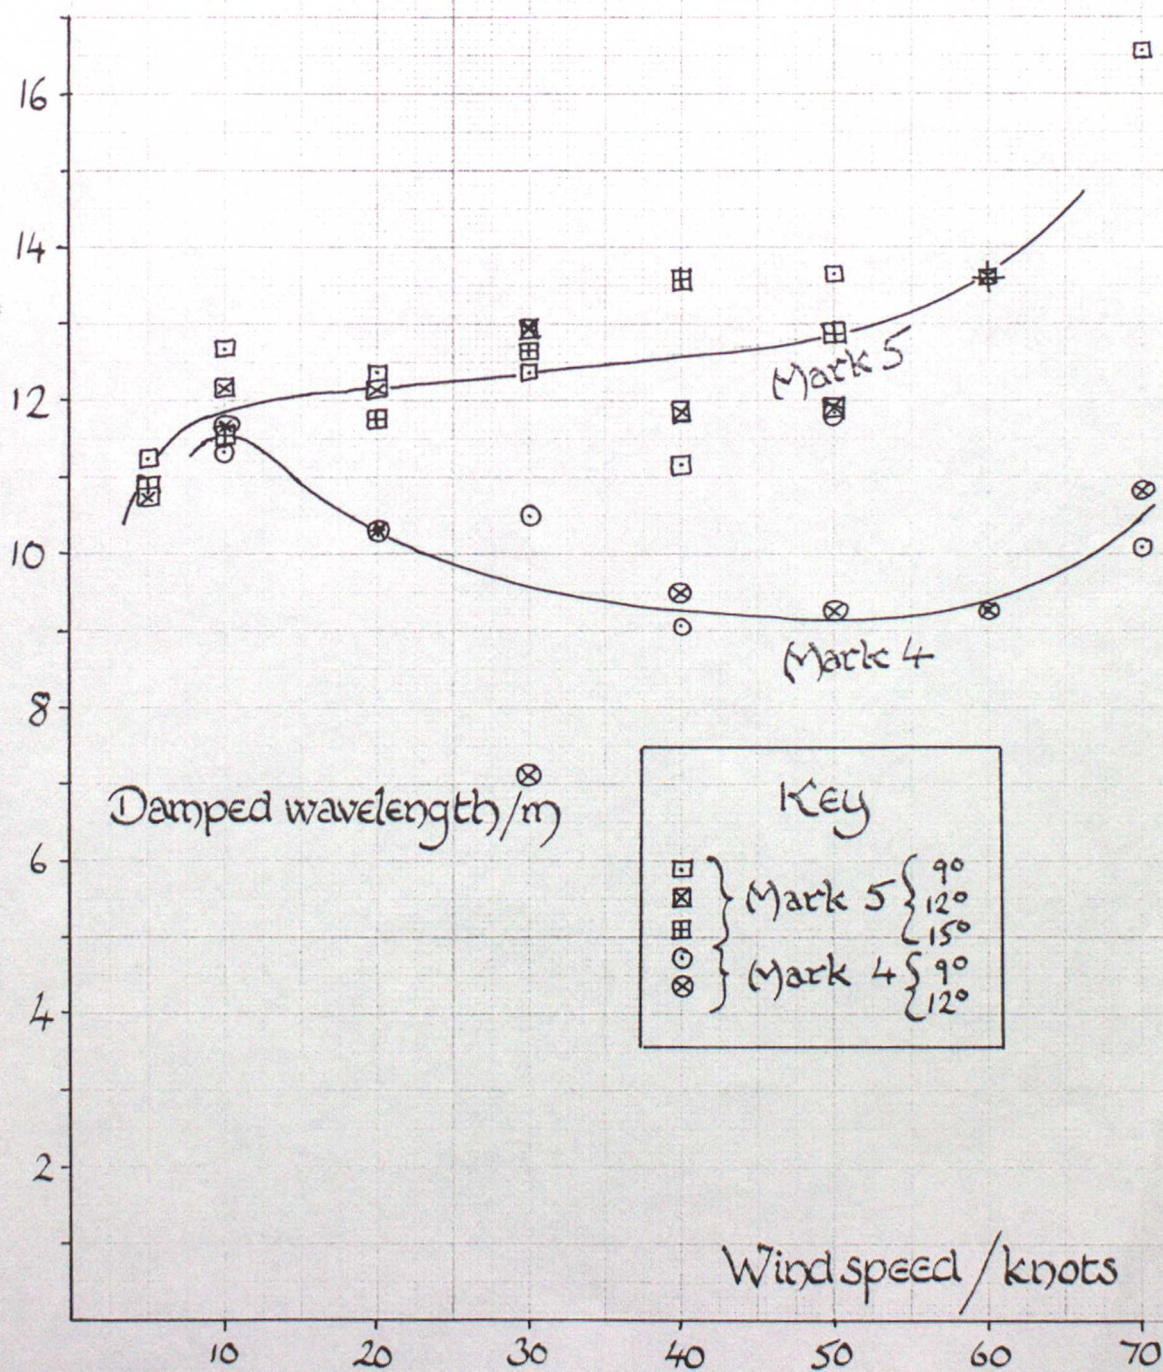 16
14
Mark 5
12
10
Mark 4
8
Damped wavelength/m
Key
6
Mark 5 { 9°
12°
15°
Mark 4 { 9°
12°
4
2
Wind speed/knots
10 20 30 40 50 60 70